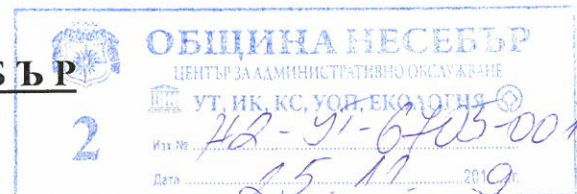 ОБЩИНА НЕСЕБЪР
ЦЕНТЪР ЗА АДМИНИСТРАТИВНО ОБСЛУЖВАНЕ
УТ, ИК, КС, УОП, ЕКОЛОГИЯ
БЪР
2
Изх № Н2-УТ-6705-001
Дата 25.11. 2019 г.